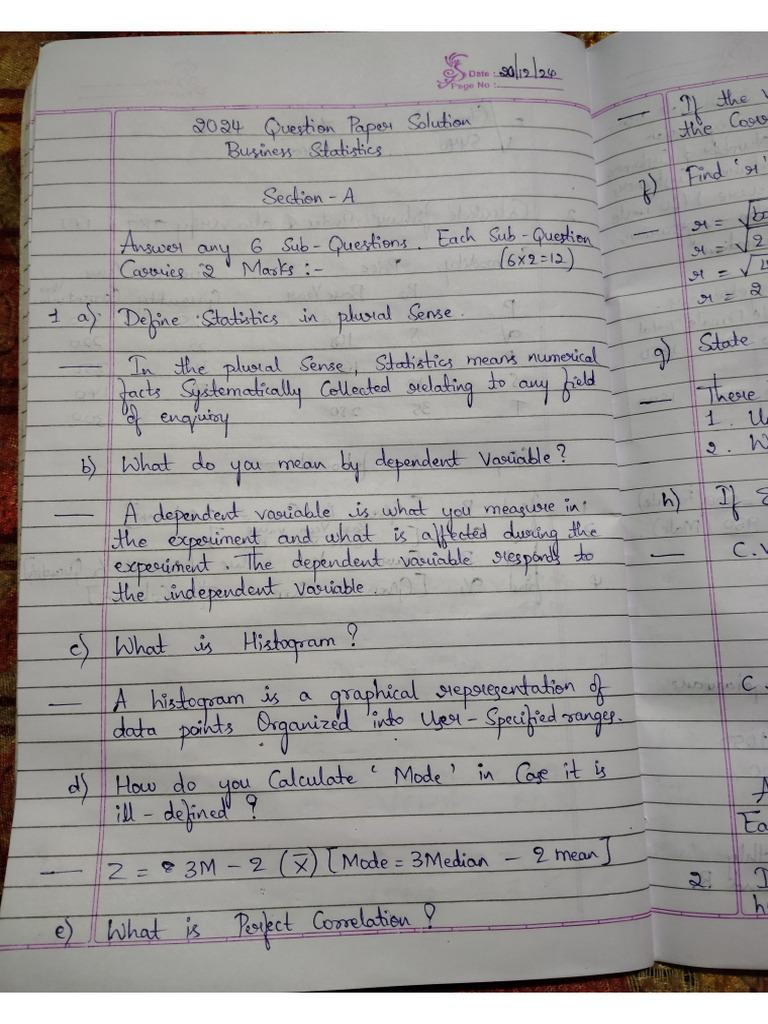 Date : 20/12/24
Page No :
2024 Question Paper Solution
Business Statistics
Section - A
Answer any 6 Sub-Questions. Each Sub-Question
Carries 2 Marks :- (6x2=12)
1 a) Define Statistics in plural Sense.
In the plural Sense, Statistics means numerical
facts Systematically Collected relating to any field
of enquiry
b) What do you mean by dependent Variable?
A dependent variable is what you measure in
the experiment and what is affected during the
experiment. The dependent variable responds to
the independent variable.
c) What is Histogram?
A histogram is a graphical representation of
data points Organized into User-Specified ranges.
d) How do you Calculate 'Mode' in Case it is
ill-defined?
Z = 3M - 2 (x̄) [Mode = 3Median - 2 mean]
e) What is Perfect Correlation?
If the
the
f) Find 'r'
r = √
r = √2
r = √
r = 2
g) State
There
1.
2.
h) If
C.V
C.
2.